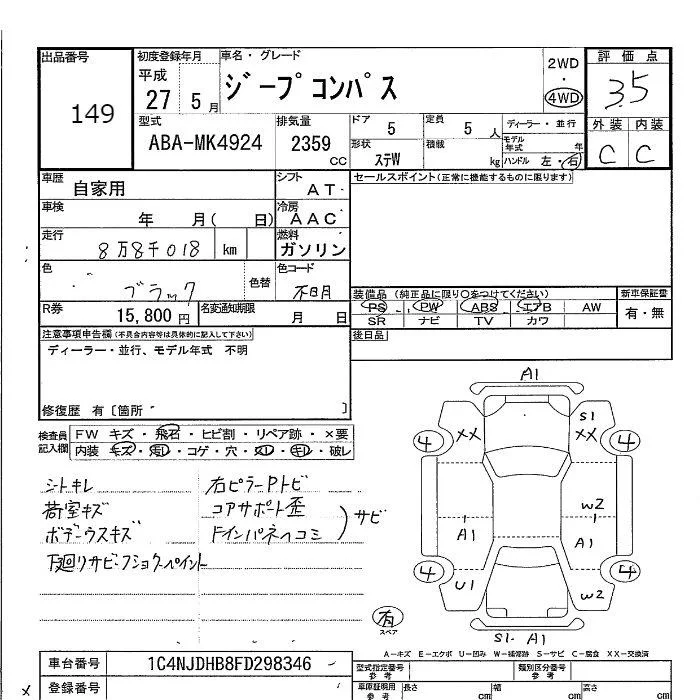 出品番号
149
初度登録年月
平成
27 5 月
車名・グレード
ジープコンパス
2WD
・
4WD
評価点
3.5
外装 内装
C C
型式
ABA-MK4924
排気量
2359
cc
ドア 5
定員 5 人
ディーラー・並行
モデル年式 年
形状 ステW
積載 kg
ハンドル 左・右
車歴 自家用
シフト AT
セールスポイント(正常に機能するものに限ります)
車検 年 月( 日)
冷房 AAC
走行 8万8千018 km
燃料 ガソリン
色 ブラック
色替
色コード 不明
R券 15,800円
名変通知期限 月 日
装備品 (純正品に限り○をつけてください)
PS PW ABS エアB AW
SR ナビ TV カワ
新車保証書
有・無
後日品
注意事項申告欄(不具合内容等は具体的に記入して下さい)
ディーラー・並行、モデル年式 不明
修復歴 有〔箇所 〕
検査員記入欄
FW キズ・飛石・ヒビ割・リペア跡・×要
内装 キズ・汚レ・コゲ・穴・スレ・キレ・破レ
シトキレ
荷室キズ
ボデーウスキズ
下廻リサビ・フショク・ペイント
右ピラーPトビ
コアサポート歪
ドインパネヘコミ
サビ
A1
S1
XX XX
4 4
W2
A1 A1
4 4
U1 W2
S1・A1
有
スペア
A-キズ E-エクボ U-凹み W-補修跡 S-サビ C-腐食 XX-交換済
車台番号 1C4NJDHB8FD298346
登録番号
型式指定番号 参考
類別区分番号 参考
車庫証明用 参考
長さ cm
幅 cm
高さ cm